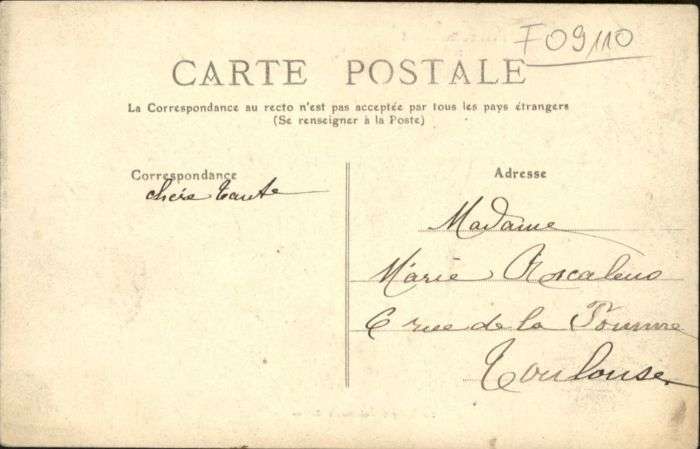 F 09110
CARTE POSTALE
La Correspondance au recto n'est pas acceptée par tous les pays étrangers
(Se renseigner à la Poste)
Correspondance
chère tante
Adresse
Madame
Marie
6 rue de la Pomme
Toulouse